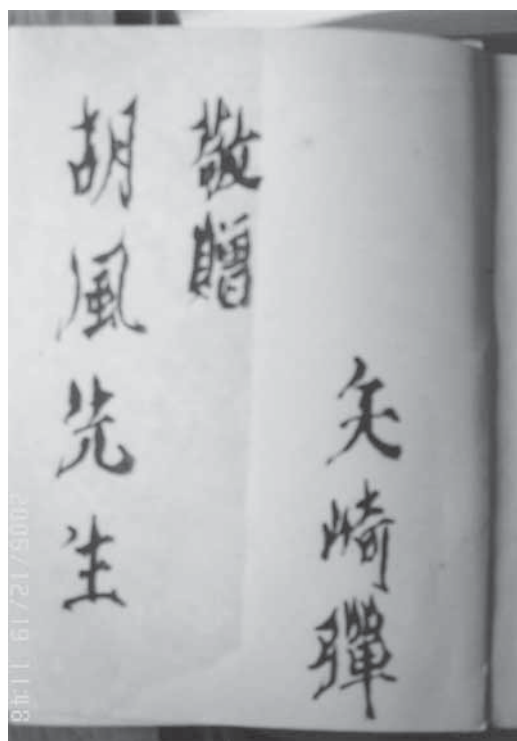 矢崎彈
敬贈
胡風先生
2005/12/19 11:48